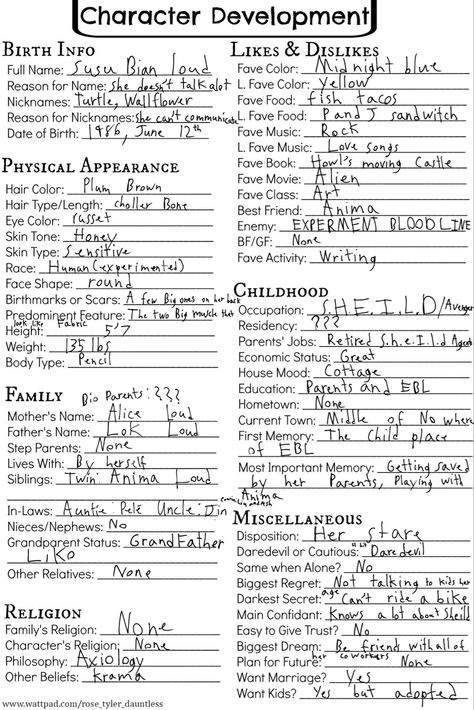 Character Development
BIRTH INFO
Full Name: Susu Bian Loud
Reason for Name: She doesn't talk alot
Nicknames: Turtle, Wallflower
Reason for Nicknames: she can't communicate
Date of Birth: 1986, June 12th
PHYSICAL APPEARANCE
Hair Color: Plum Brown
Hair Type/Length: choller Bone
Eye Color: russet
Skin Tone: Honey
Skin Type: Sensitive
Race: Human (experimented)
Face Shape: round
Birthmarks or Scars: A few Big ones on her back
Predominent Feature: The two Big muscle that
look like Fabric
Height: 5'7
Weight: 135 lbs
Body Type: Pencil
FAMILY Bio Parents: ???
Mother's Name: Alice Loud
Father's Name: Lok Loud
Step Parents: None
Lives With: By herself
Siblings: Twin: Anima Loud
In-Laws: Auntie: Pele Uncle: Jin
Nieces/Nephews: No
Grandparent Status: Grand Father
Liko
Other Relatives: None
RELIGION
Family's Religion: None
Character's Religion: None
Philosophy: Axiology
Other Beliefs: Krama
www.wattpad.com/rose_tyler_dauntless
LIKES & DISLIKES
Fave Color: Midnight blue
L. Fave Color: Yellow
Fave Food: fish tacos
L. Fave Food: P and J sandwitch
Fave Music: Rock
L. Fave Music: Love songs
Fave Book: Howl's moving Castle
Fave Movie: Alien
Fave Class: Art
Best Friend: Anima
Enemy: EXPERMENT BLOOD LINE
BF/GF: None
Fave Activity: Writing
CHILDHOOD
Occupation: S.H.E.I.L.D/Avenger
Residency: ???
Parents' Jobs: Retired S.h.e.I.l.d Agents
Economic Status: Great
House Mood: Cottage
Education: Parents and EBL
Hometown: None
Current Town: Middle of No where
First Memory: The Child place
of EBL
Most Important Memory: Getting saved
by her Parents, Playing with
Anima
MISCELLANEOUS
Disposition: Her stare
Daredevil or Cautious: Daredevil
Same when Alone? No
Biggest Regret: Not talking to kids her
age
Darkest Secret: Can't ride a bike
Main Confidant: Knows a lot about Sheild
Easy to Give Trust? No
Biggest Dream: Be friend with all of
her coworkers
Plan for Future: None
Want Marriage? Yes
Want Kids? Yes but adopted